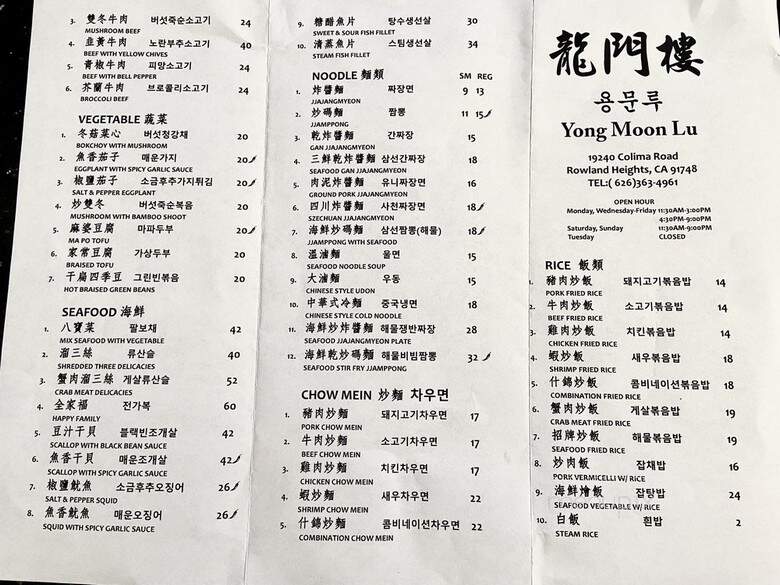 3. 雙冬牛肉 버섯죽순소고기 24
MUSHROOM BEEF
4. 韭黃牛肉 노란부추소고기 40
BEEF WITH YELLOW CHIVES
5. 青椒牛肉 피망소고기 24
BEEF WITH BELL PEPPER
6. 芥蘭牛肉 브로콜리소고기 24
BROCCOLI BEEF
VEGETABLE 蔬菜
1. 冬菇菜心 버섯청강채 20
BOKCHOY WITH MUSHROOM
2. 魚香茄子 매운가지 20
EGGPLANT WITH SPICY GARLIC SAUCE
3. 椒鹽茄子 소금후추가지튀김 20
SALT & PEPPER EGGPLANT
4. 炒雙冬 버섯죽순볶음 20
MUSHROOM WITH BAMBOO SHOOT
5. 麻婆豆腐 마파두부 20
MA PO TOFU
6. 家常豆腐 가상두부 20
BRAISED TOFU
7. 干腐四季豆 그린빈볶음 20
HOT BRAISED GREEN BEANS
SEAFOOD 海鮮
1. 八寶菜 팔보채 42
MIX SEAFOOD WITH VEGETABLE
2. 溜三絲 류산슬 40
SHREDDED THREE DELICACIES
3. 蟹肉溜三絲 게살류산슬 52
CRAB MEAT DELICACIES
4. 全家福 전가복 60
HAPPY FAMILY
5. 豆汁干貝 블랙빈조개살 42
SCALLOP WITH BLACK BEAN SAUCE
6. 魚香干貝 매운조개살 42
SCALLOP WITH SPICY GARLIC SAUCE
7. 椒鹽魷魚 소금후추오징어 26
SALT & PEPPER SQUID
8. 魚香魷魚 매운오징어 26
SQUID WITH SPICY GARLIC SAUCE
9. 糖醋魚片 탕수생선살 30
SWEET & SOUR FISH FILLET
10. 清蒸魚片 스팀생선살 34
STEAM FISH FILLET
NOODLE 麵類 SM REG
1. 炸醬麵 짜장면 9 13
JJAJANGMYEON
2. 炒碼麵 짬뽕 11 15
JJAMPPONG
3. 乾炸醬麵 간짜장 15
GAN JJAJANGMYEON
4. 三鮮乾炸醬麵 삼선간짜장 18
SEAFOOD GAN JJAJANGMYEON
5. 肉泥炸醬麵 유니짜장면 16
GROUND PORK JJAJANGMYEON
6. 四川炸醬麵 사천짜장면 18
SZECHUAN JJAJANGMYEON
7. 海鮮炒碼麵 삼선짬뽕(해물) 18
JJAMPPONG WITH SEAFOOD
8. 溫滷麵 울면 15
SEAFOOD NOODLE SOUP
9. 大滷麵 우동 15
CHINESE STYLE UDON
10. 中華式冷麵 중국냉면 18
CHINESE STYLE COLD NOODLE
11. 海鮮炒炸醬麵 해물쟁반짜장 28
SEAFOOD JJAJANGMYEON PLATE
12. 海鮮乾炒碼麵 해물비빔짬뽕 32
SEAFOOD STIR FRY JJAMPPONG
CHOW MEIN 炒麵 차우면
1. 豬肉炒麵 돼지고기차우면 17
PORK CHOW MEIN
2. 牛肉炒麵 소고기차우면 17
BEEF CHOW MEIN
3. 雞肉炒麵 치킨차우면 17
CHICKEN CHOW MEIN
4. 蝦炒麵 새우차우면 22
SHRIMP CHOW MEIN
5. 什錦炒麵 콤비네이션차우면 22
COMBINATION CHOW MEIN
龍門樓
용문루
Yong Moon Lu
19240 Colima Road
Rowland Heights, CA 91748
TEL:( 626)363-4961
OPEN HOUR
Monday, Wednesday-Friday 11:30AM-3:00PM
4:30PM-9:00PM
Saturday, Sunday 11:30AM-9:00PM
Tuesday CLOSED
RICE 飯類
1. 豬肉炒飯 돼지고기볶음밥 14
PORK FRIED RICE
2. 牛肉炒飯 소고기볶음밥 14
BEEF FRIED RICE
3. 雞肉炒飯 치킨볶음밥 14
CHICKEN FRIED RICE
4. 蝦炒飯 새우볶음밥 18
SHRIMP FRIED RICE
5. 什錦炒飯 콤비네이션볶음밥 18
COMBINATION FRIED RICE
6. 蟹肉炒飯 게살볶음밥 19
CRAB MEAT FRIED RICE
7. 招牌炒飯 해물볶음밥 19
SEAFOOD FRIED RICE
8. 炒肉飯 잡채밥 16
PORK VERMICELLI W/ RICE
9. 海鮮燴飯 잡탕밥 24
SEAFOOD VEGETABLE W/ RICE
10. 白飯 흰밥 2
STEAM RICE